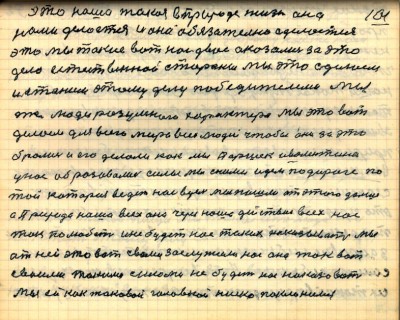 это наша такая в природе жизь она 101
нами делается и она обязательно сделается
это мы такие вот нас двое сказали за это
дело естественной стороны мы это сделаем
и станем этому делу победителями мы
же люди разумного характера мы это вот
делаем для всего мира всех людей чтобы они за это
брались и его делали как мы
у нас образовались силы мы с ними идем по дороге по
той которая ведет нас
а Природа наша всех она через наше действие всех нас
так полюбит и не будет нас таких наказывать мы
от ней это вот своим заслужили нас она так вот
своими такими силами не будет нас наказовать
мы ей как таковой головкой низко поклонился